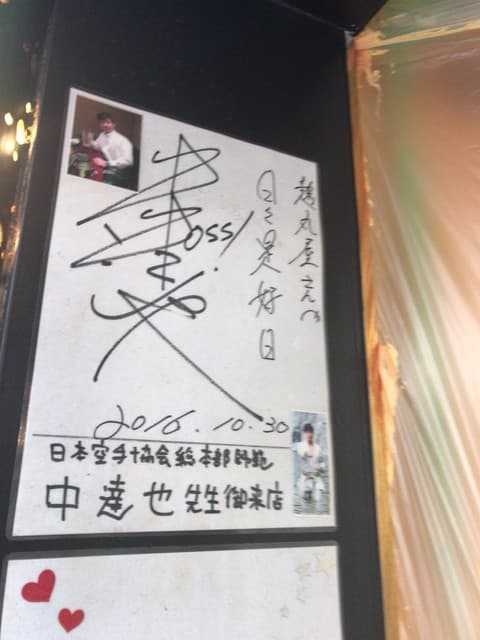 鶴丸屋さんへ
日々是好日
oss!
2016.10.30
日本空手協会総本部師範
中達也先生御来店